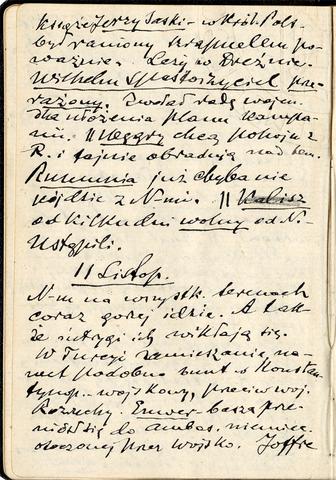 Książe Jerzy Saski - w Król. Pols.
był raniony szrapnellem po-
ważnie. Leży w Dreźnie.
Wilhelm spostoszyciel prze-
rażony. Zwołał radę wojen.
dla ułożenia planu kampa-
nii. || Węgry chcą pokoju z
R. i tajnie obradują nad tem.
Rumunia już chyba nie
pójdzie z N-mi. || Kalisz
od kilku dni wolny od N.
Ustąpili.
11 Listop.
N-m na wszystk. terenach
coraz gorzej idzie. A tak-
że intrygi ich wikłają się.
W Turcyi zamieszanie, na-
wet podobno bunt w Konstan-
tynop. - wojskowy, przeciw woj.
Rozruchy. Enwer-basza prze-
niósł się do ambas. niemiec.
otoczonej przez wojsko. Joffre